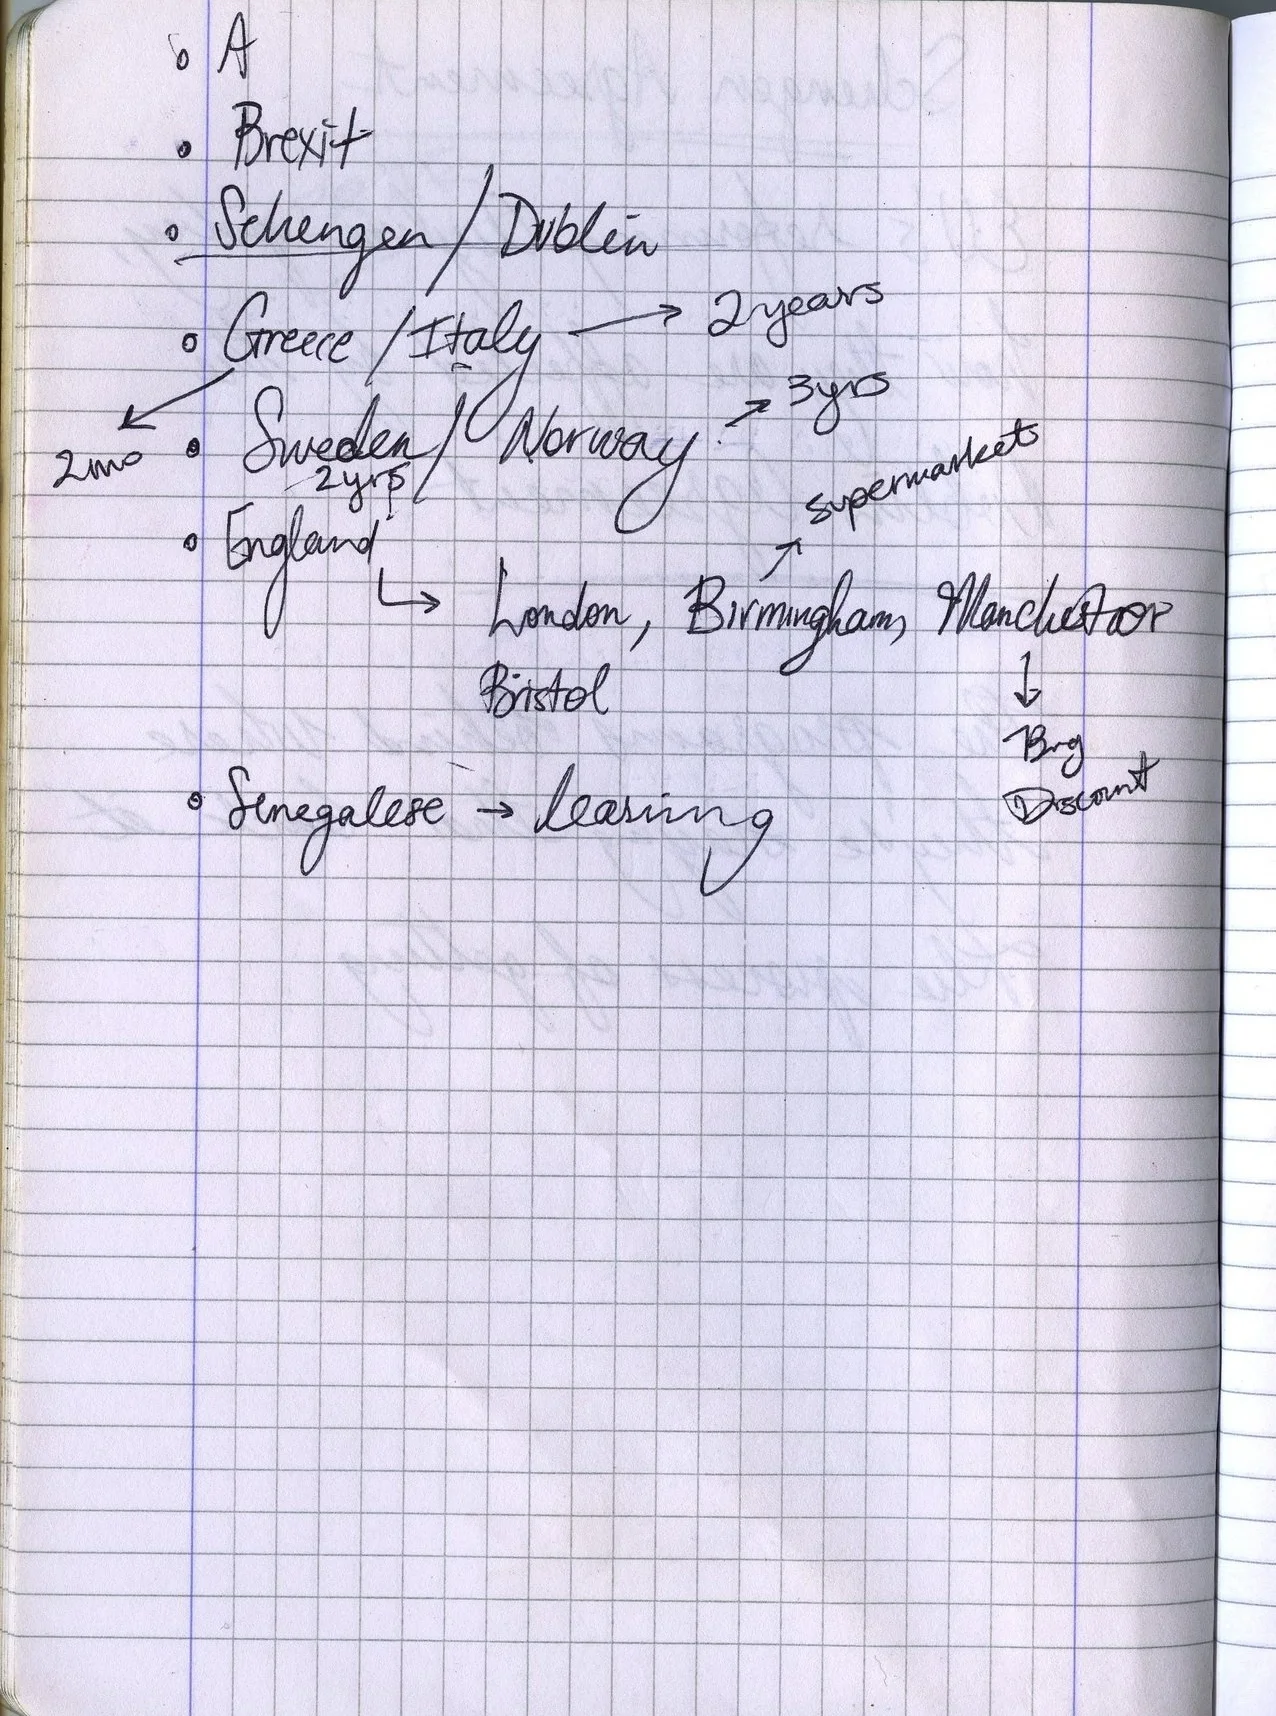 • A
• Brexit
• Schengen / Dublin
• Greece / Italy → 2 years
2mo
• Sweden / Norway → 3yrs
2yrs
• England
→ London, Birmingham, Manchester
→ supermarkets
Bristol
↓
Big
Discount
• Senegalese → leasing